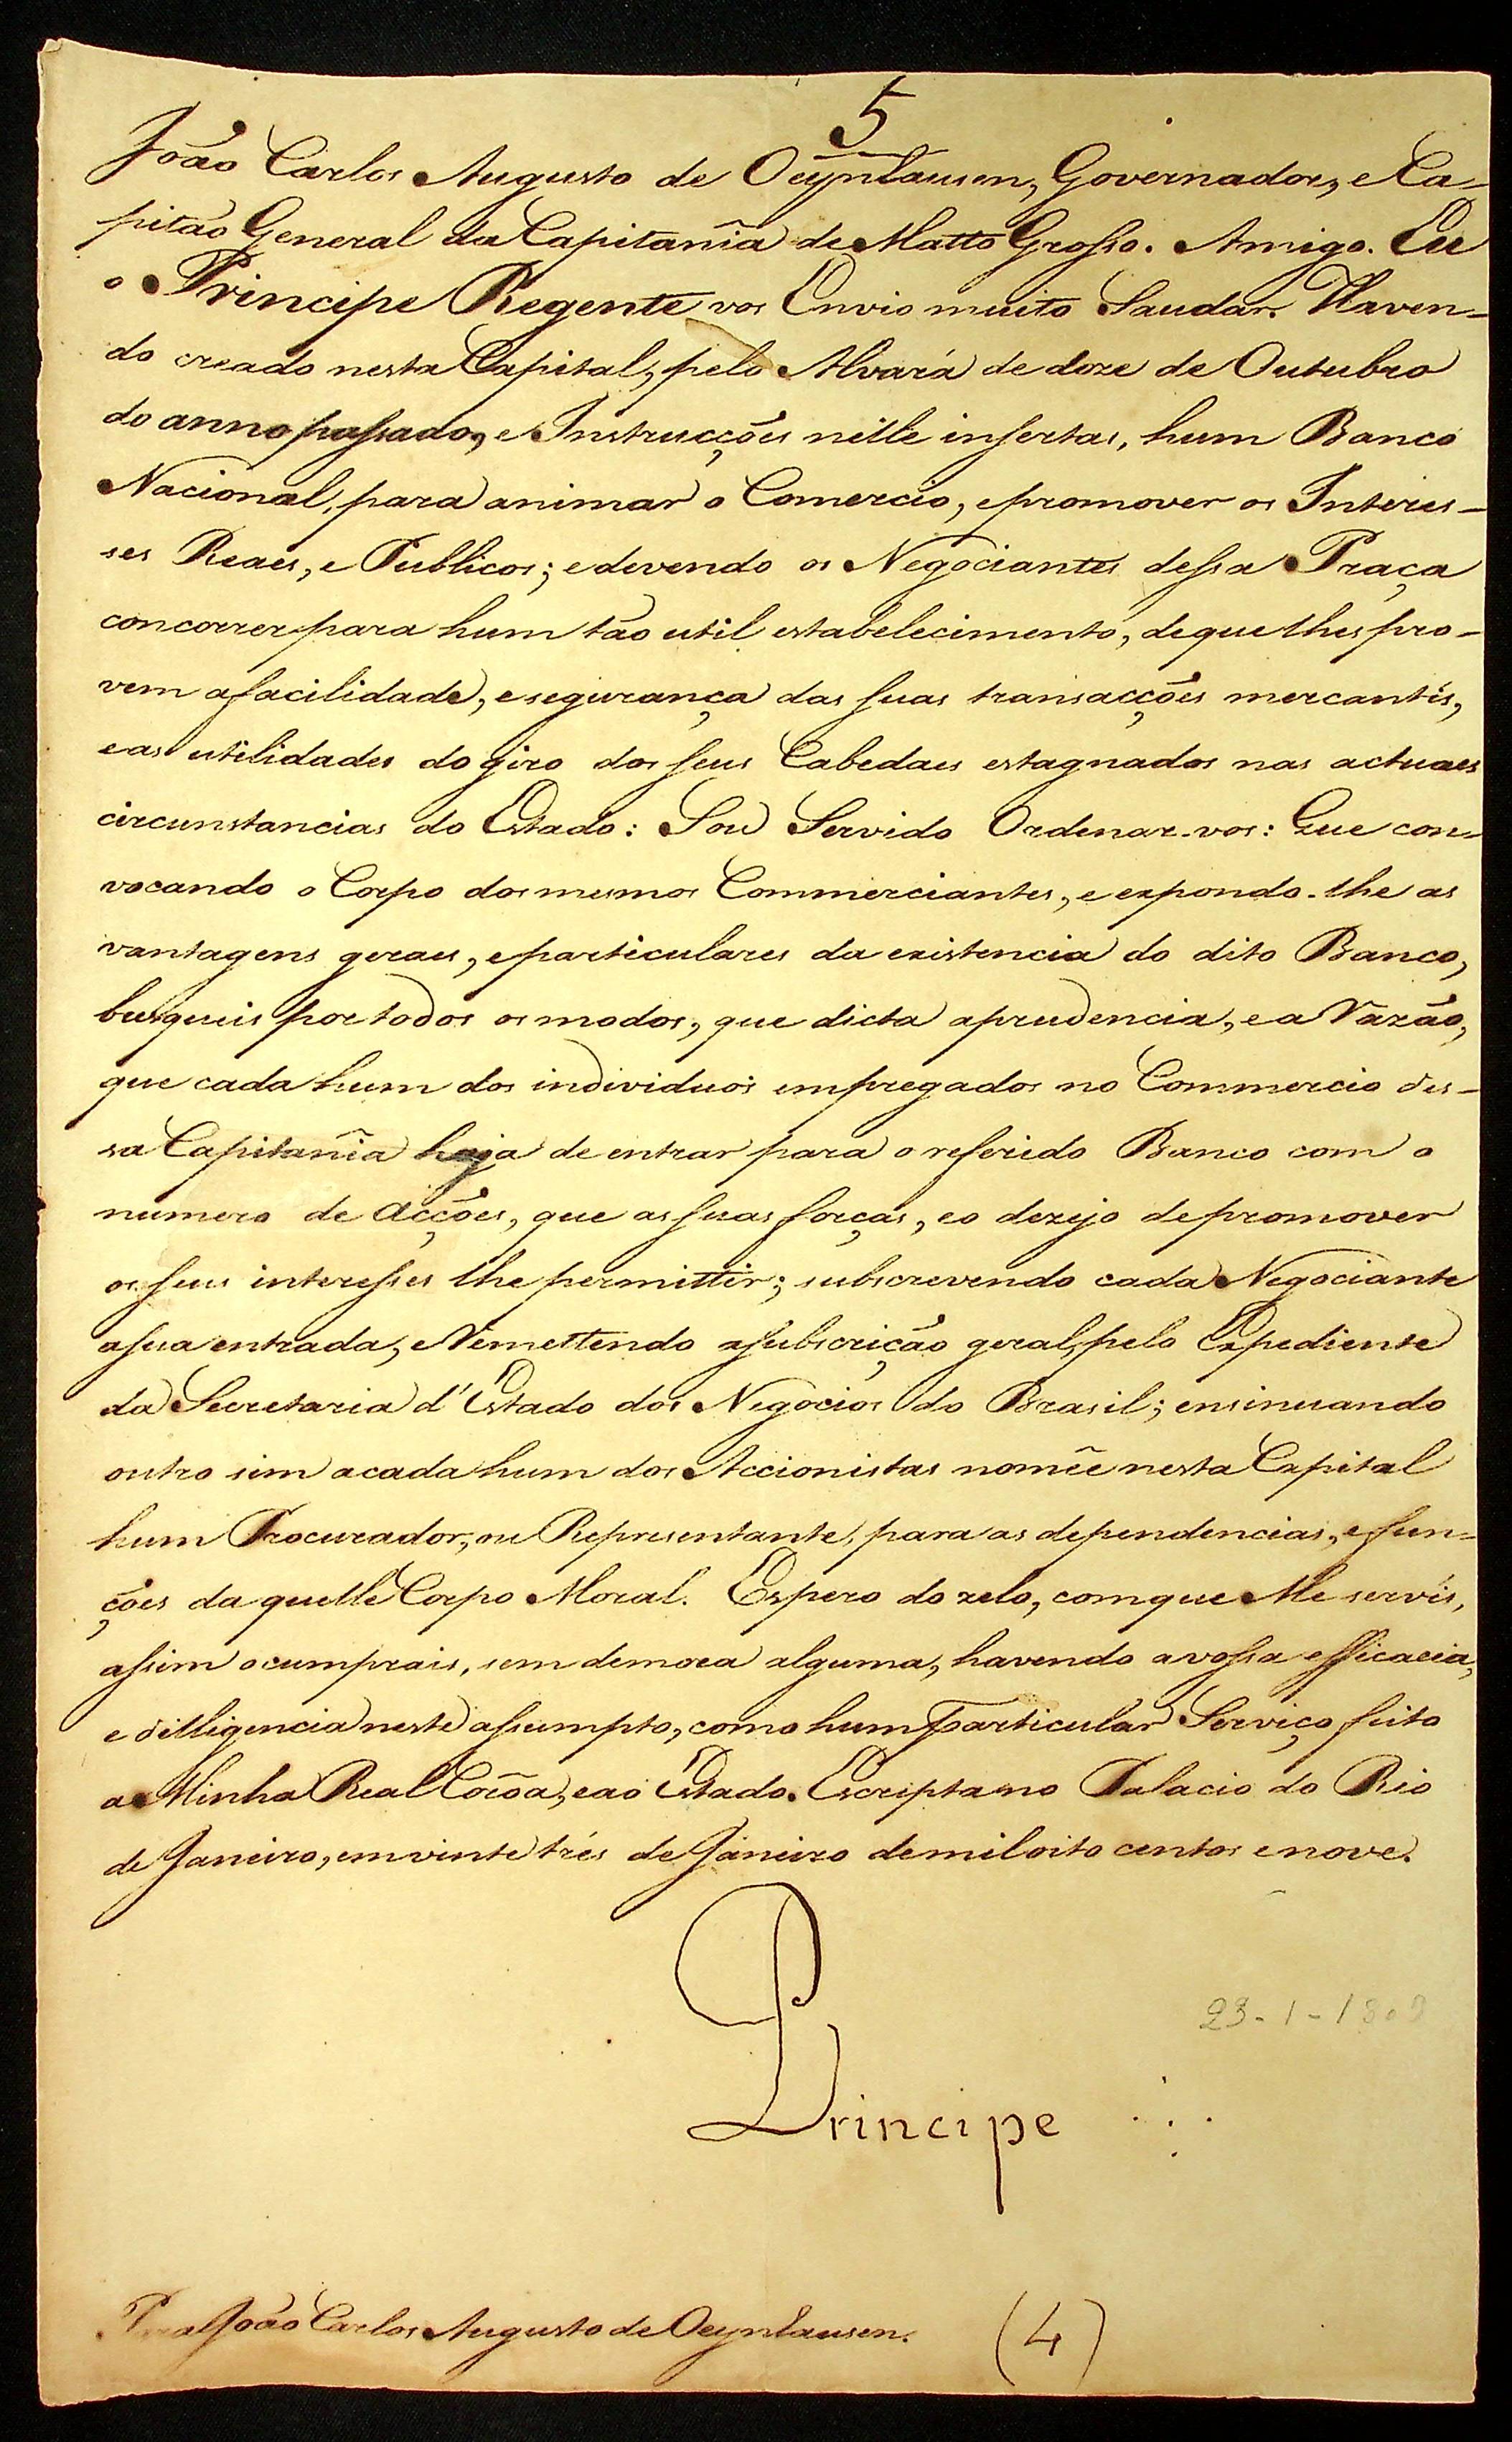 5
João Carlos Augusto de Oeynhausen, Governador, e Ca-
pitão General da Capitanîa de Matto Grosso. Amigo. Eu
o Principe Regente vos Envio muito Saudar. Haven-
do creado nesta Capital, pelo Alvará de doze de Outubro
do anno passado, e Instrucções nelle insertas, hum Banco
Nacional, para animar o Comercio, e promover os Interes-
ses Reaes, e Publicos; e devendo os Negociantes dessa Praça
concorrer para hum tão util estabelecimento, de que lhes pro-
vem a facilidade, e segurança das suas transacções mercantis,
e as utilidades do giro dos seus Cabedaes estagnados nas actuaes
circunstancias do Estado: Sou Servido Ordenar-vos: Que con-
vocando o Corpo dos mesmos Commerciantes, e expondo-lhe as
vantagens geraes, e particulares da existencia do dito Banco,
busqueis por todos os modos, que dicta a prudencia, e a Razão,
que cada hum dos individuos empregados no Commercio des-
sa Capitanîa haja de entrar para o referido Banco com o
numero de Acções, que as suas forças, e o dezejo de promover
os seus interesses lhe permittir; subscrevendo cada Negociante
a sua entrada, e Remettendo a subscrição geral, pelo Expediente
da Secretaria d'Estado dos Negocios do Brasil; ensinuando
outro sim a cada hum dos Accionistas nomêe nesta Capital
hum Procurador, ou Representante, para as dependencias, e fun-
ções da quelle Corpo Moral. Espero do zelo, com que Me servís,
assim o cumprais, sem demora alguma, havendo a vossa efficacia,
e dilligencia neste assumpto, como hum Particular Serviço feito
a Minha Real Corôa, e ao Estado. Escripta no Palacio do Rio
de Janeiro, em vinte trés de Janeiro de mil oito centos e nove.
Principe
23-1-1809
Para João Carlos Augusto de Oeynhausen.
(4)